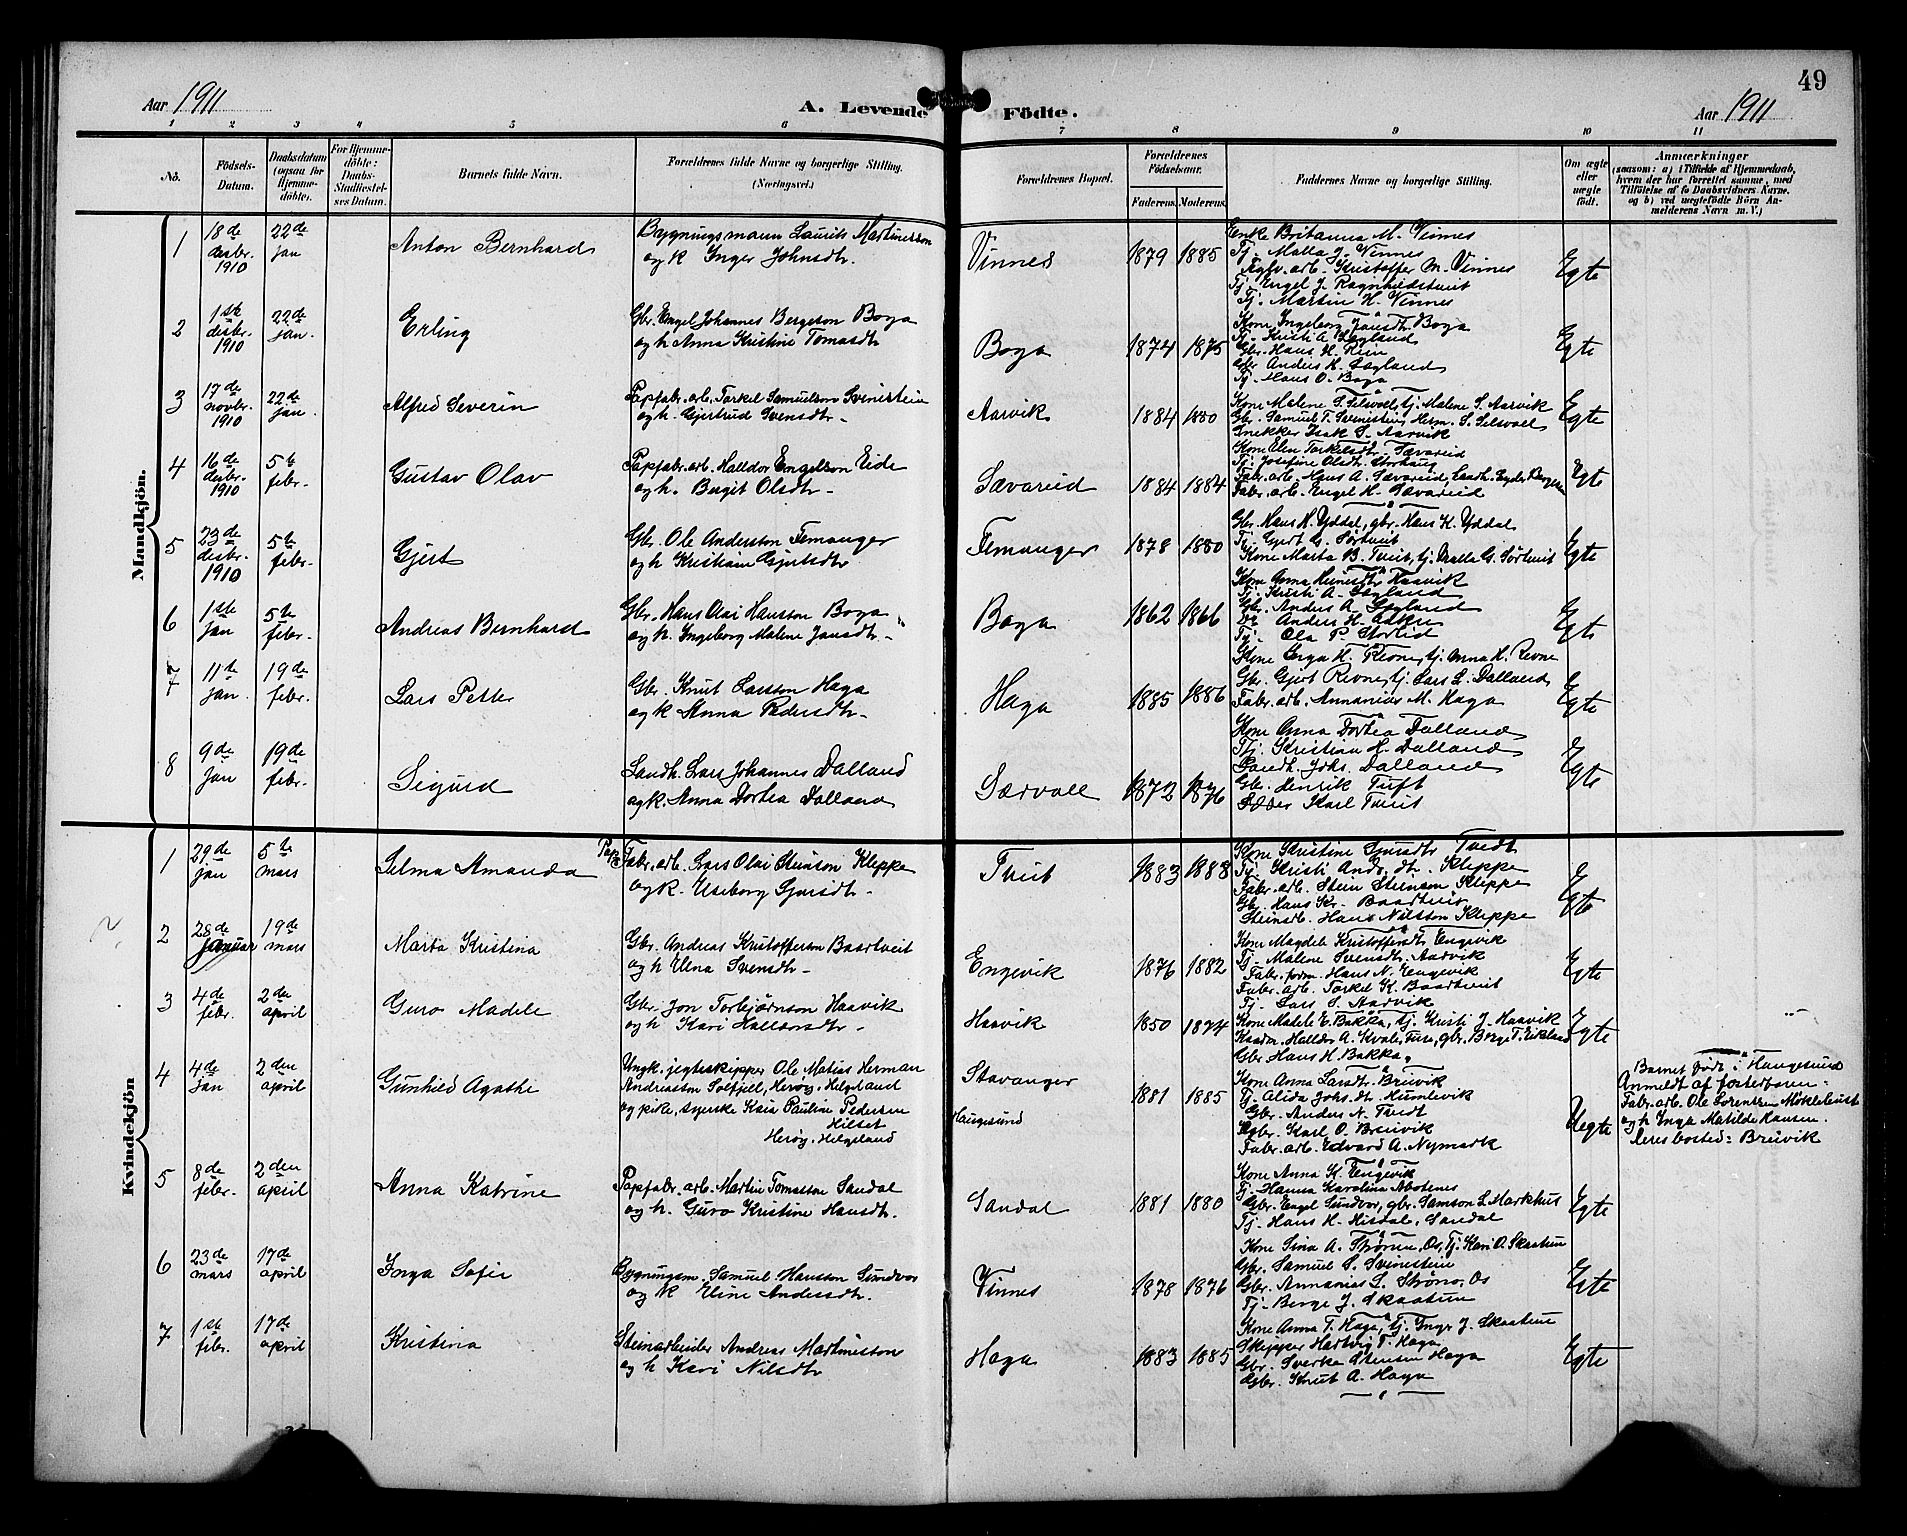 49
Aar 1911 A. Levende Födte. Aar 1911
1 2 3 4 5 6 7 8 9 10 11
No. Födsels-Datum. Daabsdatum (ogsaa for Hjemme-döbte). For Hjemme-döbte: Daabs-Stadfæstel-ses Datum. Barnets fulde Navn. Forældrenes fulde Navne og borgerlige Stilling. (Næringsvei.) Forældrenes Bopæl. Forældrenes Födselsaar. Faderens. Moderens. Faddernes Navne og borgerlige Stilling. Om ægte eller uægte födt. Anmærkninger (saasom: a) i Tilfælde af Hjemmedaab, hvem der har forrettet samme, med Tilföielse af to Daabsvidners Navne. og b) ved uægtefödte Börn Anmelderens Navn m. V.)
Mandkjön.
1 18de desbr. 1910 22de jan Anton Bernhard
Bygningsmann Laurits Martinesson
og k Inger Johnsdtr.
Vinnes 1879 1885
Enke Britanna M. Vinnes
Tj. Malla J. Vinnes
Fabr. arb. Kristoffer M. Vinnes
Tj. Engel J. Ragnhildstveit
Tj. Martin H. Vinnes
Egte
2 1ste desbr. 1910 22de jan. Erling
Gbr. Engel Johannes Bergeson Boga
og h Anna Kristine Tomasdtr
Boga 1874 1875
Kone Ingeborg Jansdtr. Boga
Tj. Kristi A. Løgland
Gbr. Hans H. Rein
Gbr Anders H. Løgland
Tj. Hans O. Boga
Egte
3 17de novbr. 1910 22de jan. Alfred Severin
Papfabr. arb. Torkel Samuelson Svinestein
og h. Gjertrud Svensdtr.
Aarvik 1884 1880
Kone Malene S. Selsvoll, tj. Malene S. Aarvik
Gbr. Samuel T. Svinestein, Herm. S. Selsvoll
Snekker Isak S. Aarvik
Egte
4 16de desbr. 1910 5te febr. Gustav Olav
Papfabr. arb. Halldor Engelson Eide
og h. Bergit Olsdtr
Sævareid 1884 1884
Kone Elen Torkelsdtr. Sævareid
Tj. Josefine Olsdtr. Storhaug
Fabr. arb. Hans A. Sævareid,
Fabr. arb. Engel H. Sævareid
Egte
5 23de desbr. 1910 5te febr. Gjert
Gbr. Ole Andersson Femanger
og h Kristiane Gjertsdtr
Femanger 1878 1880
Gbr. Hans H. Yddal, gbr. Hans K. Yddal
Tj. Gjert G. Sørtveit
Kone Marta B. Tveit, tj. Malla G. Sørtveit
Egte
6 1ste jan 5te febr. Andreas Bernhard
Gbr. Hans Olai Hansson Boga
og h. Ingeborg Malene Jansdtr.
Boga 1862 1866
Kone Anna Haavik
Tj. Kristi A. Løgland
Gbr. Anders A. Løgland
Anders H.
Tj. Ola P. Storlid
Egte
7 11te jan. 19de febr. Lars Petter
Gbr. Knut Larsson Haga
og k Anna Pedersdtr.
Haga 1885 1886
Kone Inga H. Revne, tj. Anna H. Revne
Gbr. Gjert Revne, tj. Lars L. Dalland
Fabr. arb. Annanias M. Haga
Egte
8 9de jan 19de febr. Sigurd
Landh. Lars Johannes Dalland
og k. Anna Dortea Dalland
Særvoll 1872 1876
Kone Anna Dortea Dalland
Tj. Kristina H. Dalland
Landh. Johs. Dalland
Gbr. Henrik Tuft
Karl Tveit
Egte
Kvindekjön
1 29de jan 5te mars Selma Amanda
Pap Fabr. arb. Lars Olai Steinson Kleppe
og k.
Tveit 1883 1888
Kone Kristine Tvedt
Tj. Kristi And. dtr. Kleppe
Fabr. arb. Stein Steinson Kleppe
Gbr. Hans Kr. Baardtveit
Steinarb. Hans Nilsson Kleppe
Egte
2 28de januar 19de mars Marta Kristina
Gbr. Andreas Kristofferson Baartveit
og h Elna Svensdtr
Engevik 1876 1882
Kone Magdele Kristoffersdtr Engevik
Tj. Malene Svensdtr. Aarvik
Fabr. form. Hans N. Engevik
Fabr. arb. Torkel K. Baardtveit
Tj. Lars S. Aarvik
Egte
3 4de febr. 2den april Guro Madele
Gbr Jon Torbjørnson Haavik
og h Kari Hallvarsdtr
Haavik 1850 1874
Kone Madele E. Bakka, tj. Kristi J. Haavik
Kaarm. Halldor A. Kvale, Fuse, gbr. Børge T. Eikeland
Gbr. Hans H. Bakka
Egte
4 4de jan 2den april Gunhild Agathe
Ungk. jegteskipper Ole Matias Herman
Andreassen Solfjell, Herøy, Helgeland
og pike, syerske Kaia Pauline Pedersen
Hilset
Herøy, Helgeland
Stavanger
Haugesund
1881 1885
Kone Anna Larsdtr. Breivik
Tj. Alida Johs. dtr. Humlevik
Gbr. Anders N. Tvedt
Gbr. Karl O. Breivik
Fabr. arb. Edvard A. Nymark
Uegte
Barnet født i Haugesund
Anmeldt af fosterforen.
Fabr. arb. Ole Sorentzen Møklebust
og h Inga Matilde Hansen.
deres bosted: Breivik
5 8de febr. 2den april Anna Katrine
Papfabr. arb. Martin Tomasson Sandal
og h. Guro Kristine Hansdtr.
Sandal 1881 1880
Kone Anna K. Engevik
Tj. Hanna Karolina Abotenes
Gbr. Engel Sundvor, gbr. Samson L. Markhus
Tj. Hans H. Hisdal, Sandal
Egte
6 23de mars 17de april Inga Sofie
Bygningsm. Samuel Hansson Sundvor
og k Eline Andersdtr.
Vinnes 1878 1876
Kone Sina A. Strøno, Os, Tj. Kari O. Skaatun
Gbr. Samuel S. Svinestein
Gbr. Annanias L. Strøno, Os
Tj. Berge J. Skaatun
Egte
7 1ste febr. 17de april Kristina
Steinarbeider Andreas Martinesson
og h Kari Nilsdtr
Haga 1883 1885
Kone Anna T. Haga, tj. Inger J. Skaatun
Skipper Hartvig T. Haga
Gbr. Sverke Steinsen Haga
Gbr. Knut A. Haga
Egte